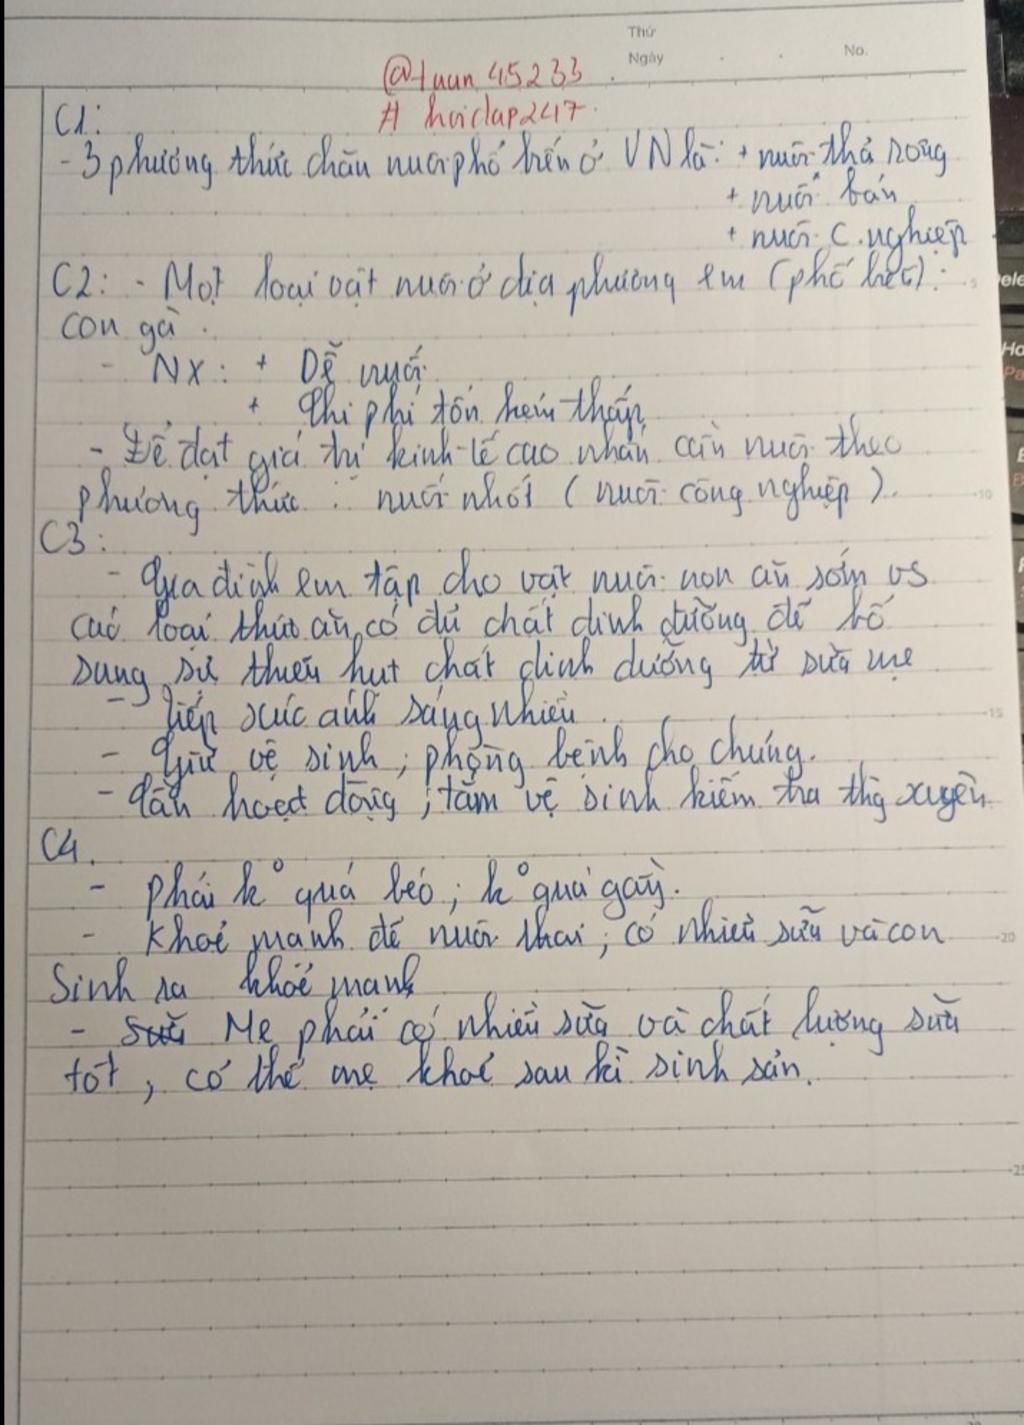 Thứ
Ngày
No.
@tuan_45233
# hoidap247
C1:
- 3 phương thức chăn nuôi phổ biến ở VN là: + nuôi thả rông
+ nuôi bán
+ nuôi C.nghiệp
C2: - Một loại vật nuôi ở địa phương em (phổ biến):
con gà.
- NX: + Dễ nuôi
+ Chi phí tốn kém thấp
- Để đạt giá trị kinh tế cao nhất cần nuôi theo
phương thức: nuôi nhốt (nuôi công nghiệp).
C3:
- Gia đình em tập cho vật nuôi non ăn sớm vs
các loại thức ăn có đủ chất dinh dưỡng để bổ
sung sự thiếu hụt chất dinh dưỡng từ sữa mẹ
- Tiếp xúc ánh sáng nhiều
- Giữ vệ sinh, phòng bệnh cho chúng.
- Cần hoạt động, tắm vệ sinh kiểm tra thg xuyên
C4.
- Phải k° quá béo; k° quá gầy.
- Khoẻ mạnh để nuôi thai, có nhiều sữa và con
Sinh ra khoẻ mạnh
- Mẹ phải có nhiều sữa và chất lượng sữa
tốt, có thể mẹ khoẻ sau kì sinh sản.
10
15
20